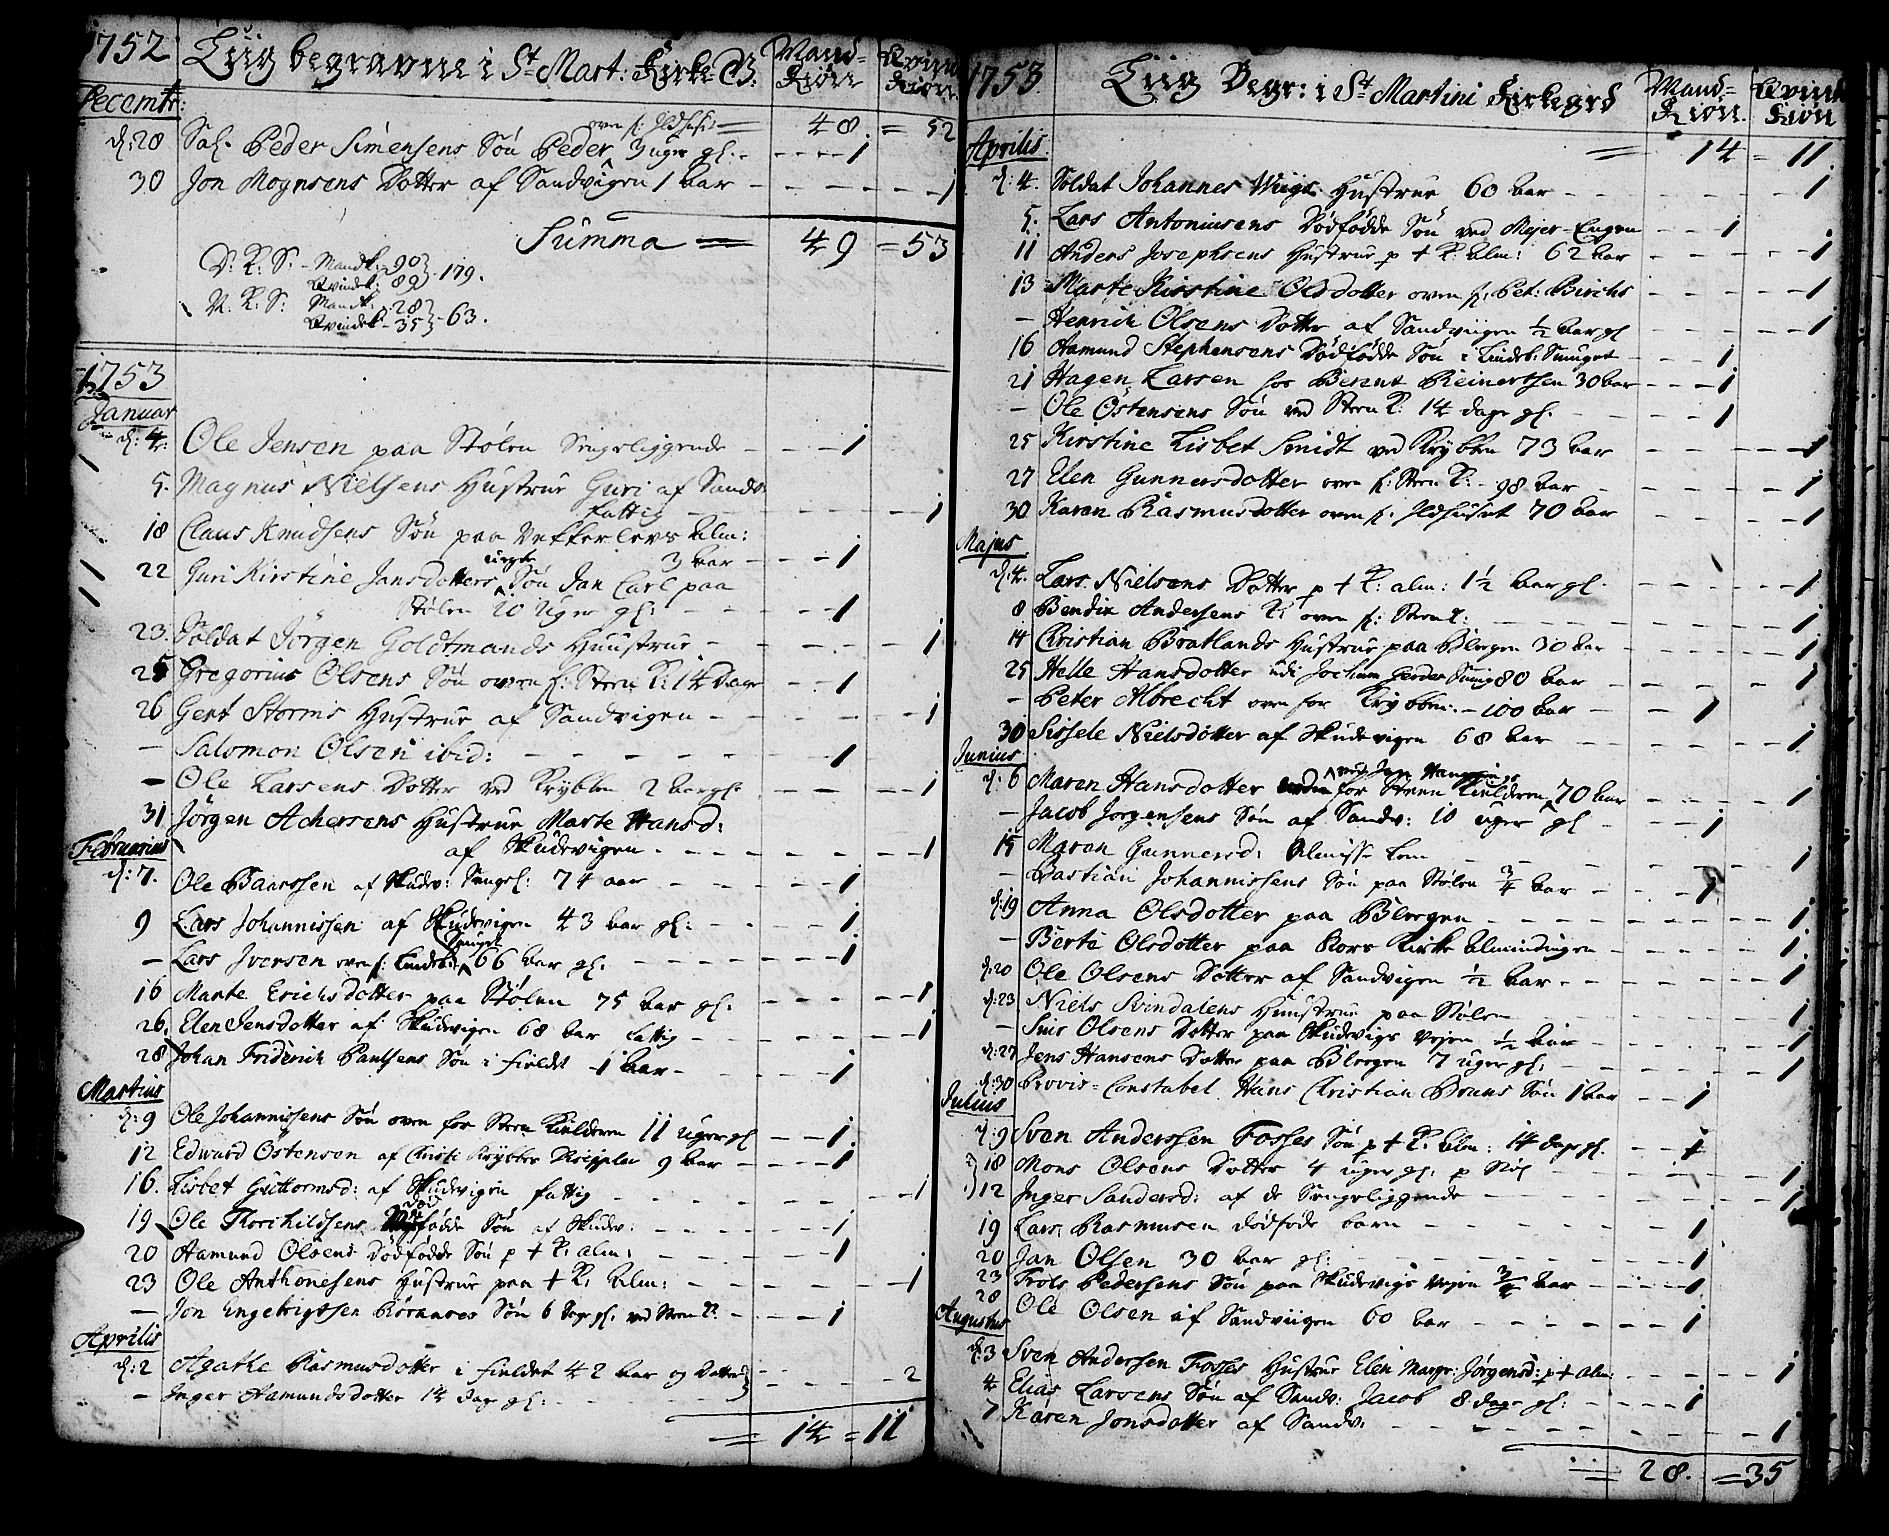 1752 Liig begravne i St Mart: Kirke G: Mand- Kiøn Qvind Kiøn
Decembr:
48. = 52
d: 28 Sal. Peder Simensens Søn Peder oven f: Ildhuset 3 uger gl. - - - 1
30 Jon Mognsens Dotter af Sandvigen 1 Aar - - - 1
Summa = 49 = 53
D: K: S: - Mandk: - 90 } - 179.
Qvindek: 89
N: K: S: Mandk: - 28 } - 63.
Qvindek - 35
1753
Januar
d: 4. Ole Jensen paa Stølen Sengeliggende - - - 1
5. Magnus Nielsens Hustrue Guri af Sandv
fattig - - - 1
18 Claus Knudsens Søn paa Alm:
3 Aar - - - 1
22 Guri Kirstine Jansdotters uægte Søn Jan Carl paa
Stølen 20 Uger gl: - - - 1
23. Soldat Jørgen Goldtmands Huustrue - - - 1
25 Gregorius Olsens Søn oven f: Steen K: 14 Dage - - 1
26 Gert Storms Hustrue af Sandvigen - - - 1
- Salomon Olsen ibid: - - - 1
- Ole Larsens Dotter ved Krybben 2 Aar gl. - - - 1
31 Jørgen Achersens Hustrue Marte Hansd:
af Skudevigen - - - 1
Februarius
d: 7. Ole Baarssen af Skudv: Sengel: 74 aar - - - 1
9 Lars Johannissen af Skudevigen 43 Aar gl: - - - 1
- Lars Iversen oven f: Lindeb: Smuget 66 Aar gl: - - - 1
16 Marte Erichsdotter paa Stølen 75 Aar gl: - - - 1
26. Elen Jensdotter af Skudevigen 68 Aar fattig - - - 1
28 Johan Friderich Pautsens Søn i fieldet 1 Aar - - - 1
Martius
d: 9 Ole Johannissens Søn oven for Steen Kielderen 11 uger gl - - 1
12 Edward Østensen af Christi Krybbe 9 Aar - - - 1
16. Lisbet Guttormsd: af Skudevigen fattig - - - 1
19 Ole Thorchildsens død fødde Søn af Skudev: - - - 1
20 Aamund Olsens Dødfødde Søn p + K: alm: - - - 1
23 Ole Anthonesens Hustrue paa + K: Alm: - - - 1
- Jon Engebrigtsen Søn 6 Dage gl. ved Steen K: - - 1
Aprilis
d: 2 Agathe Rasmusdotter i fieldet 42 Aar og Datter } - - - 2
- Inger Aamundsdotter 14 dage gl: - - -
= 14 = 11
1753. Liig Begr: i St Martini Kirkegrd Mand= Kiøn. Qvind Kiøn
Aprilis = 14 = 11.
d: 4. Soldat Johannes Hustrue 60 Aar - - - 1
5. Lars Antoniusens Dødfødde Søn ved Mejer-Engen - - - 1
11 Anders Josephsens Hustrue p + K: Alm: 62 Aar - - - 1
13 Marte Kirstine Olsdotter oven f: Pet: Birchs - - - 1
- Henrich Olsens Dotter af Sandviigen 1/2 Aar gl - - - 1
16 Aamund Stephensens Dødfødde Søn i Lindeb: Smuget - - - 1
21 Hagen Larsen hos Berent Reinertsen 30 Aar - - - 1
- Ole Østensens Søn ved Steen K: 14 dage gl. - - - 1
25 Kirstine Lisbet Smidt ved Krybben 73 Aar - - - 1
27 Elen Gunnersdotter oven f: Steen K: - 98 Aar - - - 1
30 Karen Rasmusdotter oven f: Ildhuset 70 Aar - - - 1
Majus
d: 4. Lars Nielsens Dotter p + K: alm: 1 1/2 Aar gl. - - - 1
8 Bendix Andersens K: oven f: Steen K: - - - 1
14 Christian Broatlands Hustrue paa Blegen 30 Aar - - - 1
25 Helle Hansdotter udi Jochum Gerdes Smug 80 Aar - - - 1
- Peter Albrecht oven for Krybben. - 100 Aar - - - 1
30 Sissele Nielsdotter af Skudevigen 68 Aar - - - 1
Junius
d: 6 Maren Hansdotter for Steen Kielderen 70 Aar - - - 1
- Jacob Jørgensens Søn af Sandv: 10 uger gl - - - 1
15 Maren Gunnersd: Almisse Lem - - - 1
- Bastian Johannissens Søn paa Stølen 3/4 Aar - - - 1
d: 19 Anna Olsdotter paa Blegen - - - 1
- Berte Olsdotter paa Kors Kirke Almindingen - - - 1
d: 20 Ole Olsens Dotter af Sandvigen 1/2 Aar - - - 1
d: 23 Niels Svindalens Huustrue paa Stølen - - - 1
- Siur Olsens Dotter paa Skudevigs Vejen 1/2 Aar - - - 1
d: 27 Jens Hansens Dotter paa Blegen 7 uger gl: - - - 1
d: 30 Provis= Constabel Hans Christian Bruns Søn 1 Aar - - 1
Julius
d: 9 Sven Anderssen Fosses Søn p + K: Alm: 14 dage gl. - - 1
18 Mons Olsens Dotter 4 uger gl: p Støl - - - 1
12 Inger Sandersd: af de Sengeliggende - - - 1
19 Lars Rasmusen dødføde barn - - - 1
20 Jan Olsen 30 Aar gl: - - - 1
23 Trols Pedersens Søn paa Skudevigs Vejen 3/4 Aar - - - 1
28 Ole Olsen af Sandviigen 60 Aar - - - 1
Augustus
d: 3 Sven Anderssen Fosses Hustrue Elen Margr: Jørgensd: p + alm: - - - 1
4 Elias Larsens Søn af Sandv: Jacob 8 dage gl: - - - 1
7 Karen Jonsdotter af Sandv: - - - 1
= 28. = 35